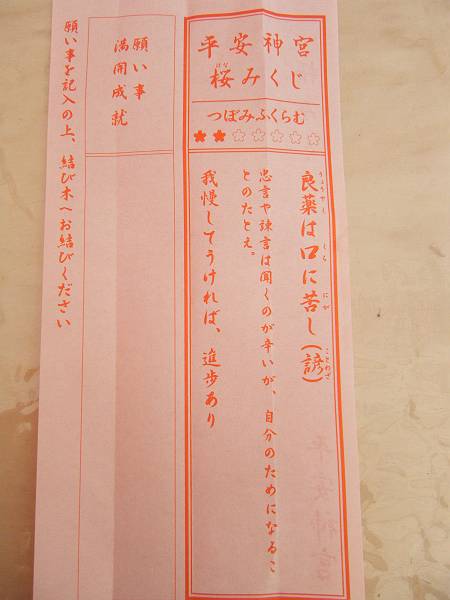 平安神宮
桜みくじ
はな
つぼみふくらむ
良薬は口に苦し(諺)
りょうやく くち にが ことわざ
忠言や諫言は聞くのが辛いが、自分のためになるこ
とのたとえ。
我慢してうければ、進歩あり
願い事
満開成就
願い事を記入の上、結び木へお結びください
平安神宮